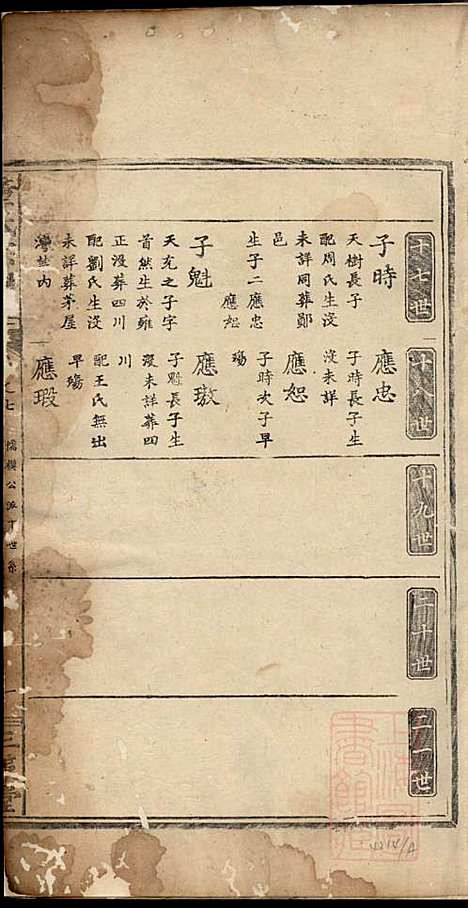 十七世
子時
天樹長子
配周氏生沒
未詳同葬鄖
邑
生子二應忠
應恕
子魁
天充之子字
首然生於雍
正沒葬四川
配劉氏生沒
未詳葬茅屋
灣莊內
十八世
應忠
子時長子生
沒未詳
應恕
子時次子早
殤
應璈
子魁長子生
沒未詳葬四
川
配王氏無出
早殤
應瑕
十九世
二十世
二一世
公派
世系
一
三
上海
書館
4214/A